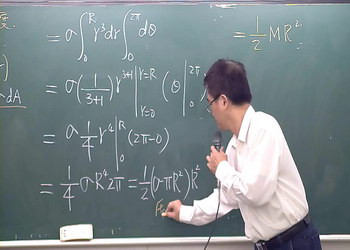 = σ∫₀ᴿ r³dr ∫₀²ᵖⁱ dθ
= ½MR²
dA
= σ(1/(3+1)) r³⁺¹|r=R r=0 (θ|₀²ᵖⁱ)
= σ 1/4 r⁴|₀ᴿ (2π-0)
= 1/4 σR⁴2π = 1/2(σπR²)R²